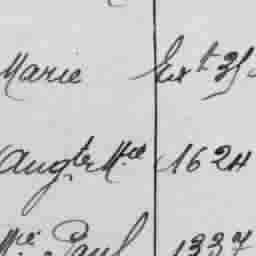 Marie Ext 35
Aug.te M.ie 1624
M.ie Paul 1337